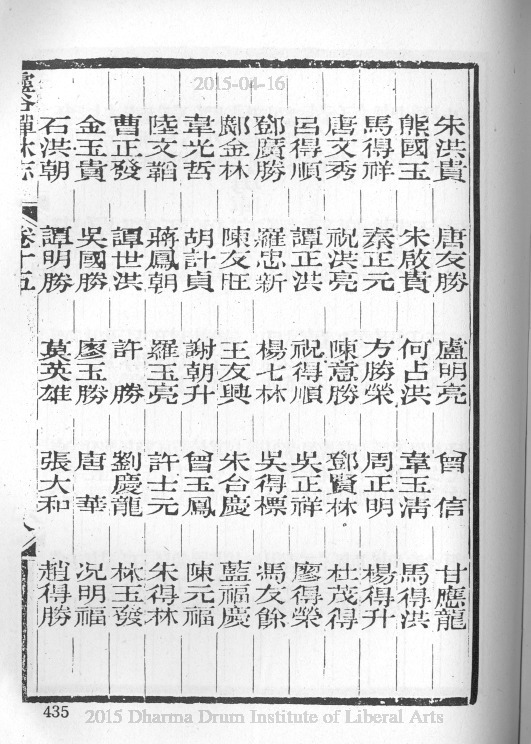 2015-04-16
朱洪貴 唐友勝 盧明亮 曾信 甘應龍
熊國玉 朱啟貴 何占洪 韋玉清 馬得洪
馬得祥 秦正元 方勝榮 周正明 楊得升
唐文秀 祝洪亮 陳意勝 鄧賢林 杜茂得
呂得順 譚正洪 祝得順 吳正祥 廖得榮
鄧廣勝 羅忠新 楊七林 吳得標 馮友餘
鄺金林 陳友旺 王友興 朱台慶 藍福慶
韋光哲 胡計貞 謝朝升 曾玉鳳 陳元福
陸文韜 蔣鳳朝 羅玉亮 許士元 朱得林
曹正發 譚世洪 許勝 劉慶龍 林玉發
金玉貴 吳國勝 廖玉勝 唐華 况明福
石洪朝 譚明勝 莫英雄 張大和 趙得勝
卷十五
435
2015 Dharma Drum Institute of Liberal Arts